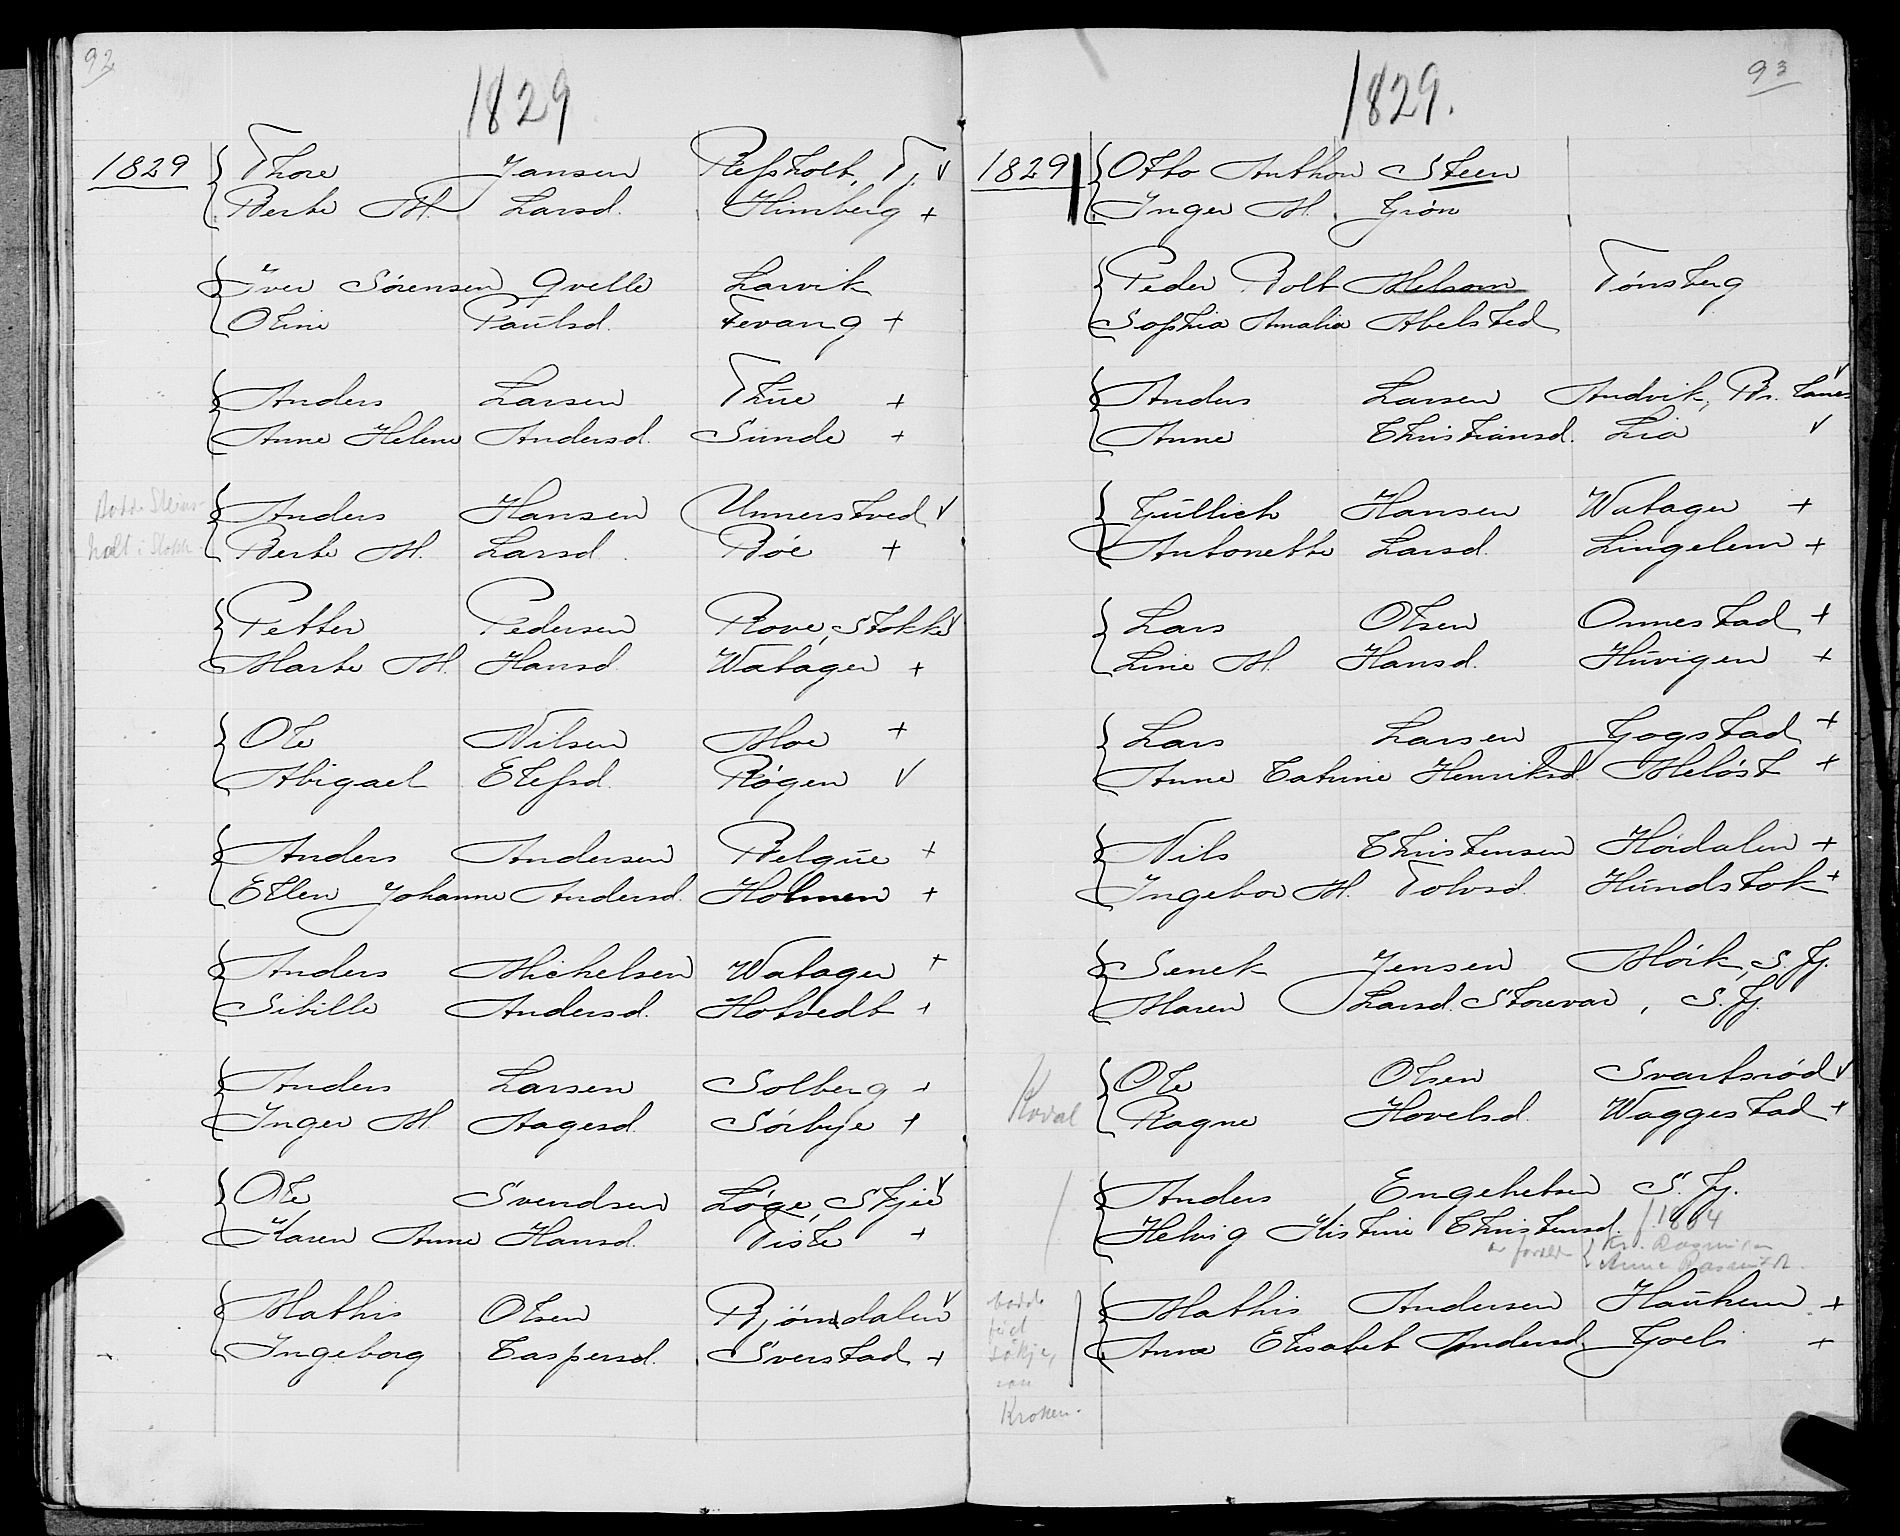 92
1829
1829 Thore Jansen Refsholt, Tj. v
Berte M. Larsd. Himberg +
Iver Sørensen Qvelle Larvik
Oline Paulsd. Fevang +
Anders Larsen Thue +
Anne Helene Andersd. Sunde +
Anders Hansen Unnerstved v
Berte M. Larsd. Bøe +
Petter Pedersen Rove, Stokke v
Marte M. Hansd. Watager +
Ole Nilsen Moe +
Abigael Elefsd. Røgen v
Anders Andersen Belgue +
Ellen Johanne Andersd. Holmen +
Anders Michelsen Watager +
Sibille Andersd. Hotvedt +
Anders Larsen Solberg +
Inger M. Aagesd. Sørbye +
Ole Svendsen Løge, Skjee v
Karen Anne Hansd. Tisle +
Mathis Olsen Bjørndalen v
Ingeborg Caspersd. Sverstad +
93
1829.
1829 Otto Anthon Steen
Inger M. Grøn
Peder Bolt Melsom Tønsberg
Sophia Amalia Abelsted
Anders Larsen Andvik, Br. Lanes v
Anne Christiansd. Lia v
Gullich Hansen Watager +
Antonette Larsd. Lingelem +
Lars Olsen Onnestad +
Line M. Hansd. Huvigen +
Lars Larsen Gogstad +
Anne Catrine Henriksd. Meløst +
Nils Christensen Høidalen +
Ingebor M. Tolvsd. Hundstok +
Senek Jensen Mørk, S. Fj.
Maren Larsd. Storevar, S. Fj.
Ole Olsen Svartsrød v
Ragne Hovelsd. Waggestad +
Anders Engebretsen S. Fj.
Helvig Kistine Christensd. f. 1804
Mathis Andersen Haukem +
Anne Elisabet Andersd. Gjoels +
Kroken.